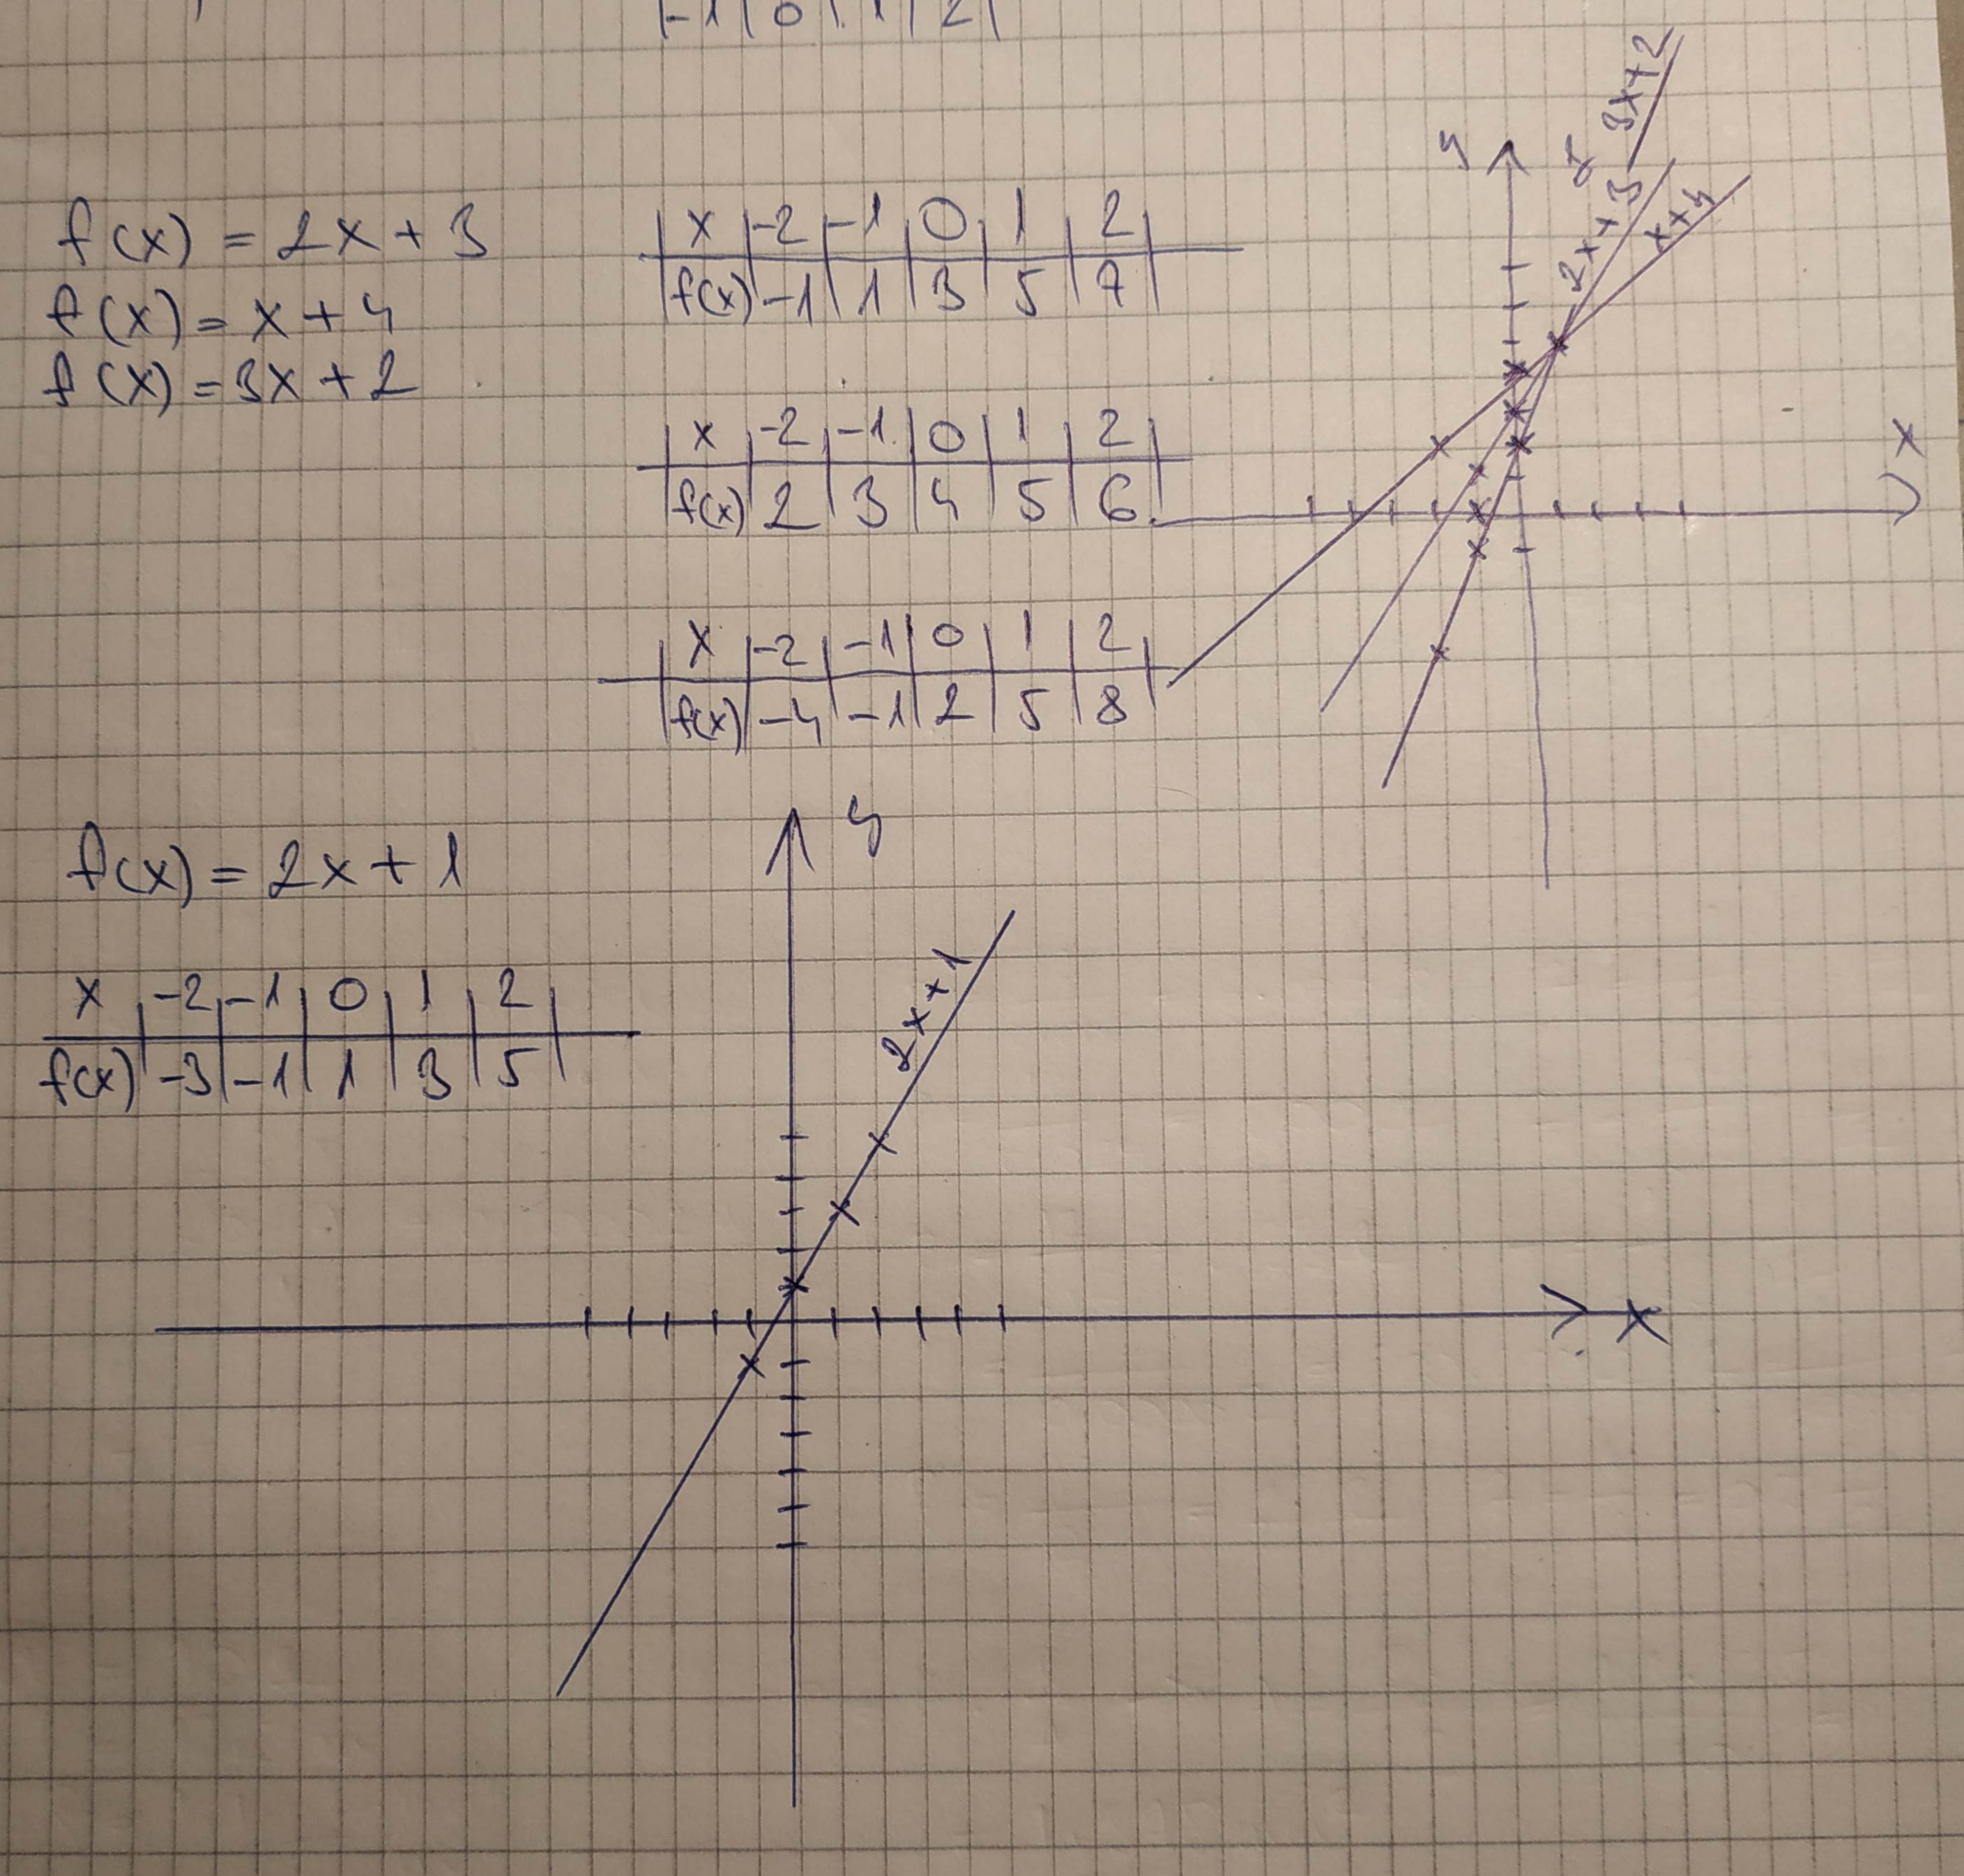 -1 | 0 | 1 | 2 |
f(x) = 2x + 3
f(x) = x + 4
f(x) = 3x + 2
| x | -2 | -1 | 0 | 1 | 2 |
| f(x) | -1 | 1 | 3 | 5 | 7 |
| x | -2 | -1 | 0 | 1 | 2 |
| f(x) | 2 | 3 | 4 | 5 | 6 |
| x | -2 | -1 | 0 | 1 | 2 |
| f(x) | -4 | -1 | 2 | 5 | 8 |
y
3x+2
2x+3
x+4
x
f(x) = 2x + 1
x | -2 | -1 | 0 | 1 | 2 |
f(x) | -3 | -1 | 1 | 3 | 5 |
y
2x+1
x